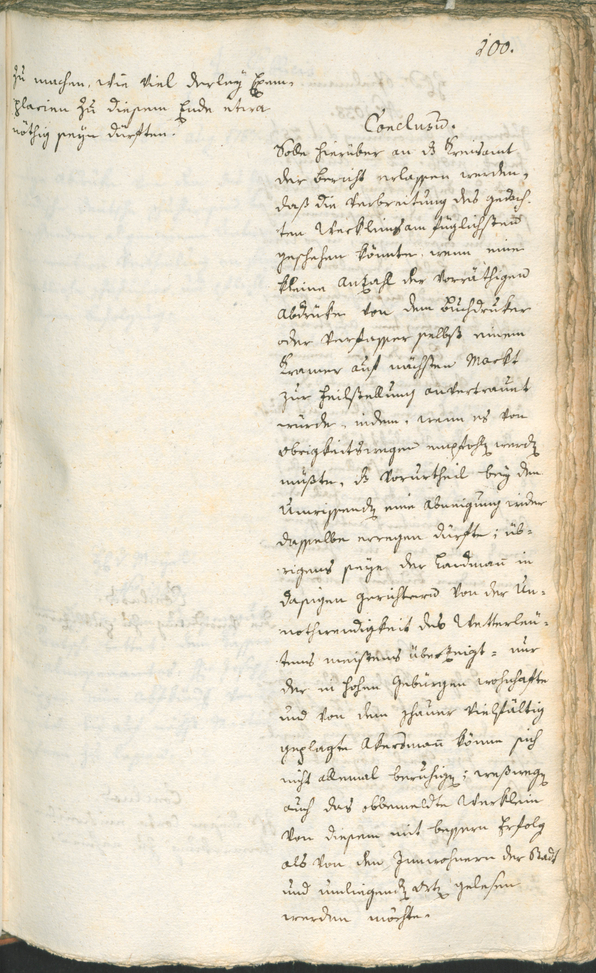 200.
zu machen, wie viel derley Exem-
plarien zu diesem Ende etwa
nöthig seyn dürften.
Conclusũ.
Solle hierüber an dß Kreisamt
der Bericht erlassen werden,
daß die Verbreitung des gedach-
ten Werkleins am füglichsten
geschehen könnte, wenn eine
kleine Anzahl der vorräthigen
Abdrüke von dem Buchdruker
oder Verfasser selbst einem
Kramer auf nächsten Markt
zur Feilstellung anvertrauet
würde, indem, wenn es von
obrigkeitswegen empfohlñ werdñ
müßte, dß Vorurtheil bey den
Unwissendñ eine Abneigung wider
dasselbe erregen dürfte; üb-
rigens seye der Landman in
dasigen Gerichtern von der Un-
nothwendigkeit des Wetterleü-
tens meistens überzeigt, nur
der in hohen Gebürgen wohnhafte
und von dem Schauer vielfältig
geplagte Akersmañ könne sich
nicht allemal beruhigñ; weßwegñ
auch das obbemeldte Werklein
von diesem mit bessern Erfolg
als von den Innwohnern der Stadt
und umliegendñ Ortñ gelesen
werden möchte.